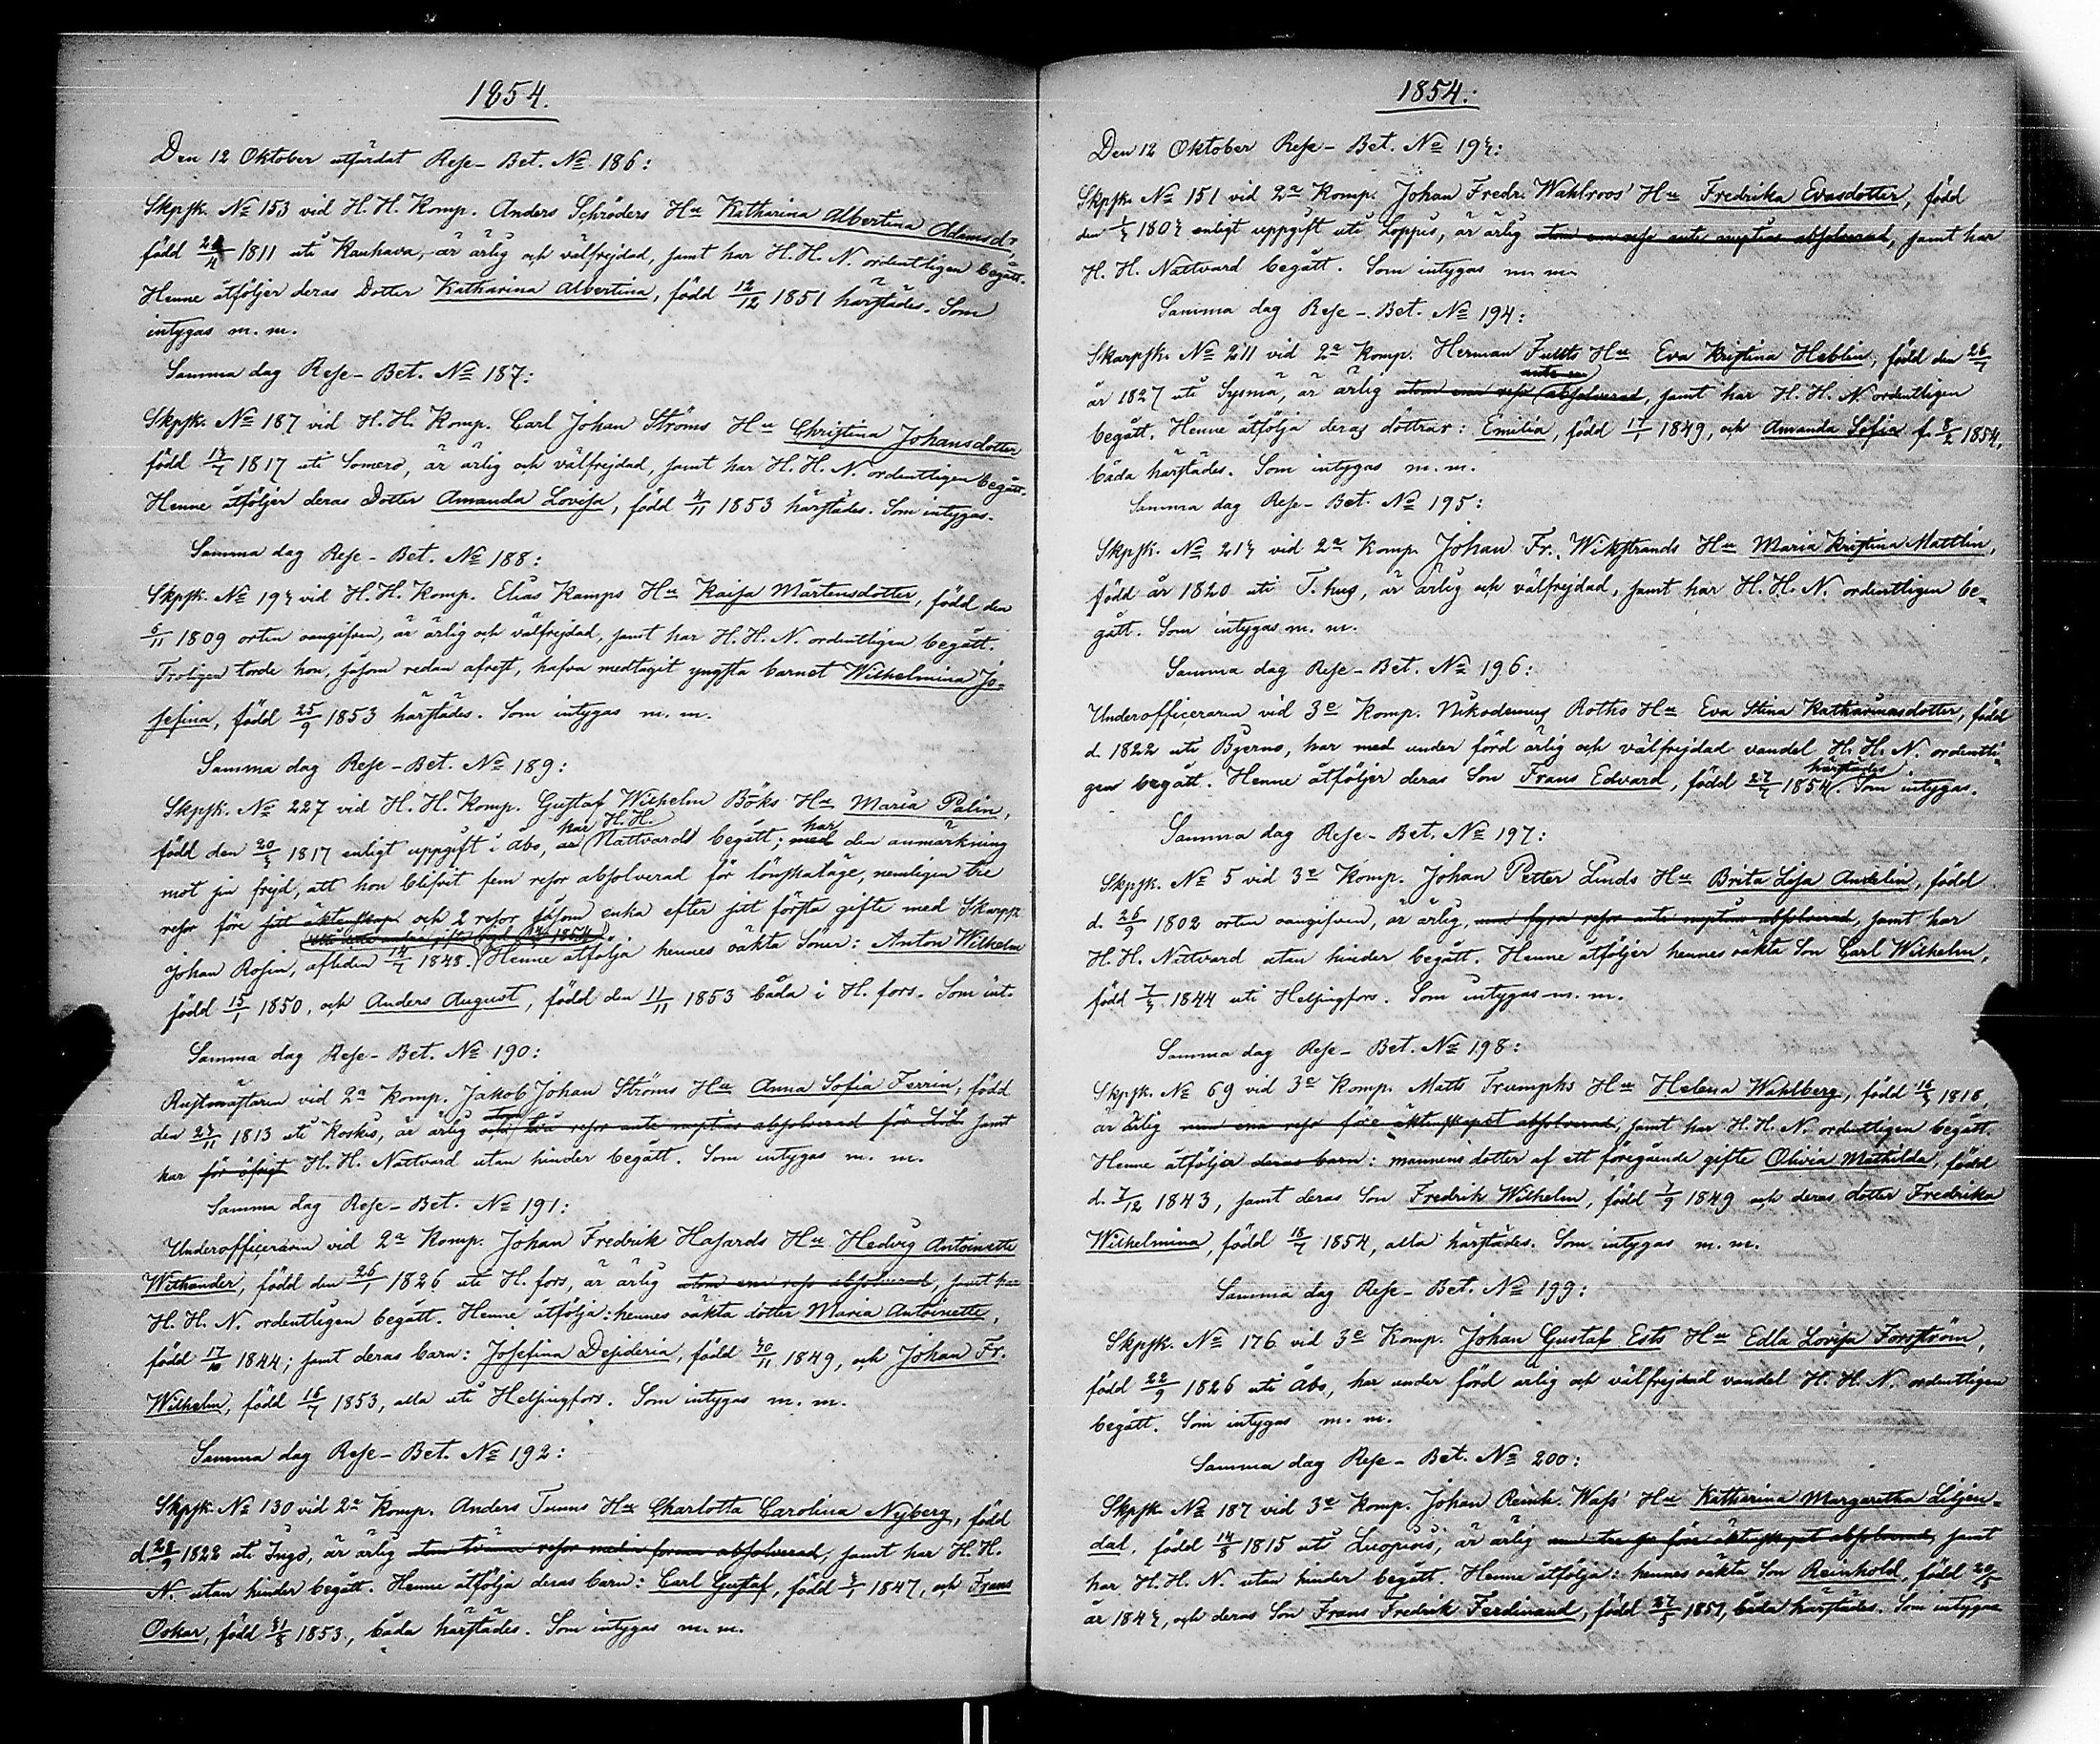 1854.
Den 12 Oktober utfärdat Rese-Bet. No 186:
Skpsk. No 153 vid H. H. Komp. Anders Schröders Hu Katharina Albertina Adamsdr,
född 1811 uti Kauhava, är ärlig och välfrejdad, samt har H. H. N. ordentligen begått.
Henne åtföljer deras Dotter Katharina Albertina, född 12/12 1851 härstädes. Som
intygas m. m.
Samma dag Rese-Bet. No 187:
Skpsk. No 187 vid H. H. Komp. Carl Johan Ströms Hu Christina Johansdotter
född 13/7 1817 uti Somero, är ärlig och välfrejdad, samt har H. H. N. ordentligen begått.
Henne åtföljer deras Dotter Amanda Lovisa, född 4/11 1853 härstädes. Som intygas.
Samma dag Rese-Bet. No 188:
Skpsk. No 193 vid H. H. Komp. Elias Kamps Hu Kaisa Mårtensdotter, född den
6/11 1809 orten oangifven, är ärlig och välfrejdad, samt har H. H. N. ordentligen begått.
Troligen torde hon, såsom redan afrest, hafva medtagit yngsta barnet Wilhelmina Jo-
sefina, född 25/9 1853 härstädes. Som intygas m. m.
Samma dag Rese-Bet. No 189:
Skpsk. No 227 vid H. H. Komp. Gustaf Wilhelm Böks Hu Maria Palin,
född den 20/3 1817 enligt uppgift i Åbo, har H. H. Nattvard begått; har den anmärkning
mot sin frejd, att hon blifvit fem resor absolverad för lönskaläge, nemligen tre
resor före sitt äktenskap och 2 resor såsom enka efter sitt första gifte med Skarpsk.
Johan Rosin, afliden 14/7 1848. Henne åtfölja hennes oäkta Söner: Anton Wilhelm
född 15/1 1850, och Anders August, född den 11/11 1853 båda i H. fors. Som int.
Samma dag Rese-Bet. No 190:
Rustmästaren vid 2a Komp. Jakob Johan Ströms Hu Anna Sofia Ferrin, född
den 23/11 1813 uti Koskis, är ärlig utom två resor ante nuptias absolverad samt
har för öfrigt H. H. Nattvard utan hinder begått. Som intygas m. m.
Samma dag Rese-Bet. No 191:
Underofficeraren vid 2a Komp. Johan Fredrik Hasards Hu Hedvig Antoinette
Withander, född den 26/1 1826 uti H. fors, är ärlig utom en resa absolverad, samt har
H. H. N. ordentligen begått. Henne åtfölja: hennes oäkta dotter Maria Antoinette,
född 17/10 1844; samt deras barn: Josefina Desideria, född 30/11 1849, och Johan Fr.
Wilhelm, född 16/7 1853, alla uti Helsingfors. Som intygas m. m.
Samma dag Rese-Bet. No 192:
Skpsk. No 130 vid 2a Komp. Anders Tumms Hu Charlotta Carolina Nyberg, född
d. 1822 uti Ingo, är ärlig utom tvänne resor absolverad, samt har H. H.
N. utan hinder begått. Henne åtfölja deras barn: Carl Gustaf, född 1847, och Frans
Oskar, född 31/8 1853, båda härstädes. Som intygas m. m.
1854:
Den 12 Oktober Rese-Bet. No 193:
Skpsk. No 151 vid 2a Komp. Johan Fredr. Wahlroos' Hu Fredrika Evasdotter, född
den 1803 enligt uppgift uti Loppis, är ärlig utom en resa ante nuptias absolverad, samt har
H. H. Nattvard begått. Som intygas m. m.
Samma dag Rese-Bet. No 194:
Skarpsk. No 211 vid 2a Komp. Herman Hu Eva Kristina Heblin, född den 26/7
år 1827 uti Sysmä, är ärlig utom en resa absolverad, samt har H. H. N. ordentligen
begått. Henne åtfölja deras döttrar: Emilia, född 17/1 1849, och Amanda Sofia f. 8/2 1854,
båda härstädes. Som intygas m. m.
Samma dag Rese-Bet. No 195:
Skpsk. No 213 vid 2a Komp. Johan Fr. Wikstrands Hu Maria Kristina Mattlin,
född år 1820 uti T. hus, är ärlig och välfrejdad, samt har H. H. N. ordentligen be-
gått. Som intygas m. m.
Samma dag Rese-Bet. No 196:
Underofficeraren vid 3e Komp. Nikodemus Roths Hu Eva Stina Katharinasdotter, född
d. 1822 uti Bjerno, har med under förd ärlig och välfrejdad vandel H. H. N. ordentli-
gen begått. Henne åtföljer deras Son Frans Edvard, född 27/7 1854 härstädes. Som intygas.
Samma dag Rese-Bet. No 197:
Skpsk. No 5 vid 3e Komp. Johan Petter Linds Hu Brita Lisa Andelin, född
d. 26/9 1802 orten oangifven, är ärlig, men fyra resor ante nuptias absolverad, samt har
H. H. Nattvard utan hinder begått. Henne åtföljer hennes oäkta Son Carl Wilhelm,
född 7/3 1844 uti Helsingfors. Som intygas m. m.
Samma dag Rese-Bet. No 198:
Skpsk. No 69 vid 3e Komp. Matts Trumphs Hu Helena Wahlberg, född 16/3 1818,
är ärlig men en resa före äktenskapet absolverad, samt har H. H. N. ordentligen begått.
Henne åtfölja deras barn: mannens dotter af ett föregående gifte Olivia Mathilda, född
d. 7/12 1843, samt deras Son Fredrik Wilhelm, född 7/9 1849 och deras dotter Fredrika
Wilhelmina, född 18/7 1854, alla härstädes. Som intygas m. m.
Samma dag Rese-Bet. No 199:
Skpsk. No 176 vid 3e Komp. Johan Gustaf Ests Hu Edla Lovisa Forsström,
född 22/9 1826 uti Åbo, har under förd ärlig och välfrejdad vandel H. H. N. ordentligen
begått. Som intygas m. m.
Samma dag Rese-Bet. No 200:
Skpsk No 187 vid 3e Komp. Johan Reinh. Wass' Hu Katharina Margaretha Liljen-
dal, född 14/8 1815 uti Luopiois, är ärlig men tre resor före äktenskapet absolverad, samt
har H. H. N. utan hinder begått. Henne åtfölja: hennes oäkta Son Reinhold, född
år 1843, och deras Son Frans Fredrik Ferdinand, född 27/5 1851, båda härstädes. Som intygas